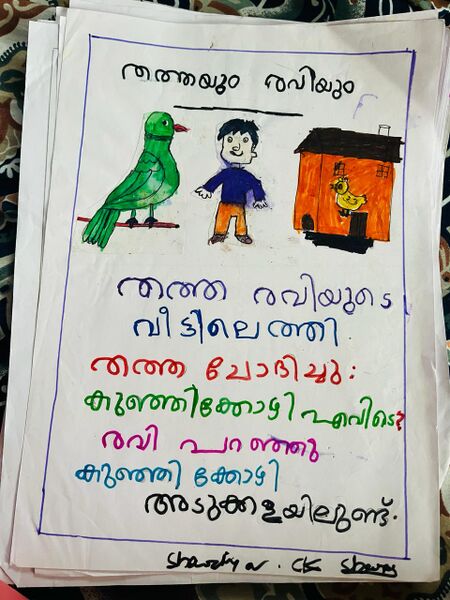 തത്തയും രവിയും
തത്ത രവിയുടെ
വീട്ടിലെത്തി.
തത്ത ചോദിച്ചു:
കുഞ്ഞിക്കോഴി എവിടെ?
രവി പറഞ്ഞു
കുഞ്ഞി ക്കോഴി
അടുക്കളയിലുണ്ട്.
CK